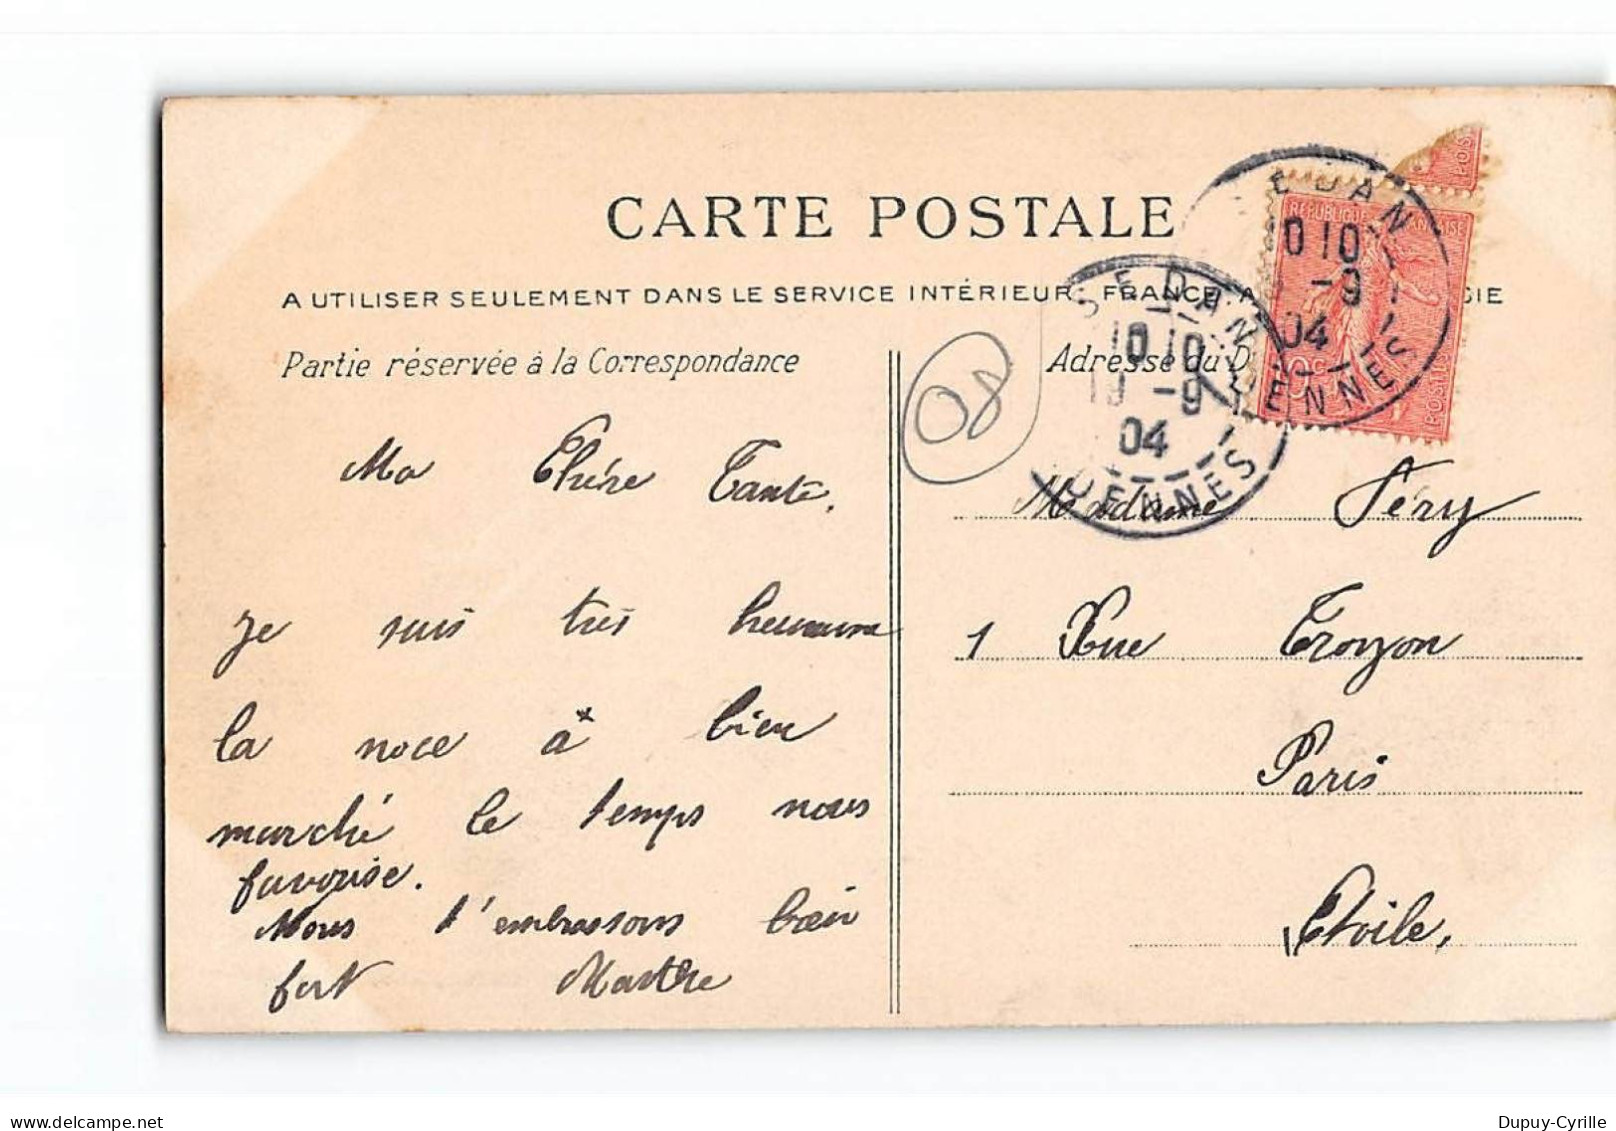 CARTE POSTALE
A UTILISER SEULEMENT DANS LE SERVICE INTÉRIEUR, FRANCE, A SIE
Partie réservée à la Correspondance
Adresse du D
REPUBLIQUE FRANÇAISE
POSTES
POS
SEDAN
10 10
19 -9
04
ARDENNES
E DAN
0 10
-9
04
ENNES
08
Ma Chère Tante.
Je suis très heureuse
la noce à bien
marché le temps nous
favorise.
Nous t'embrassons bien
fort Marthe
Madame Féry
1 Rue Troyon
Paris
Etoile,
www.delcampe.net
Dupuy-Cyrille